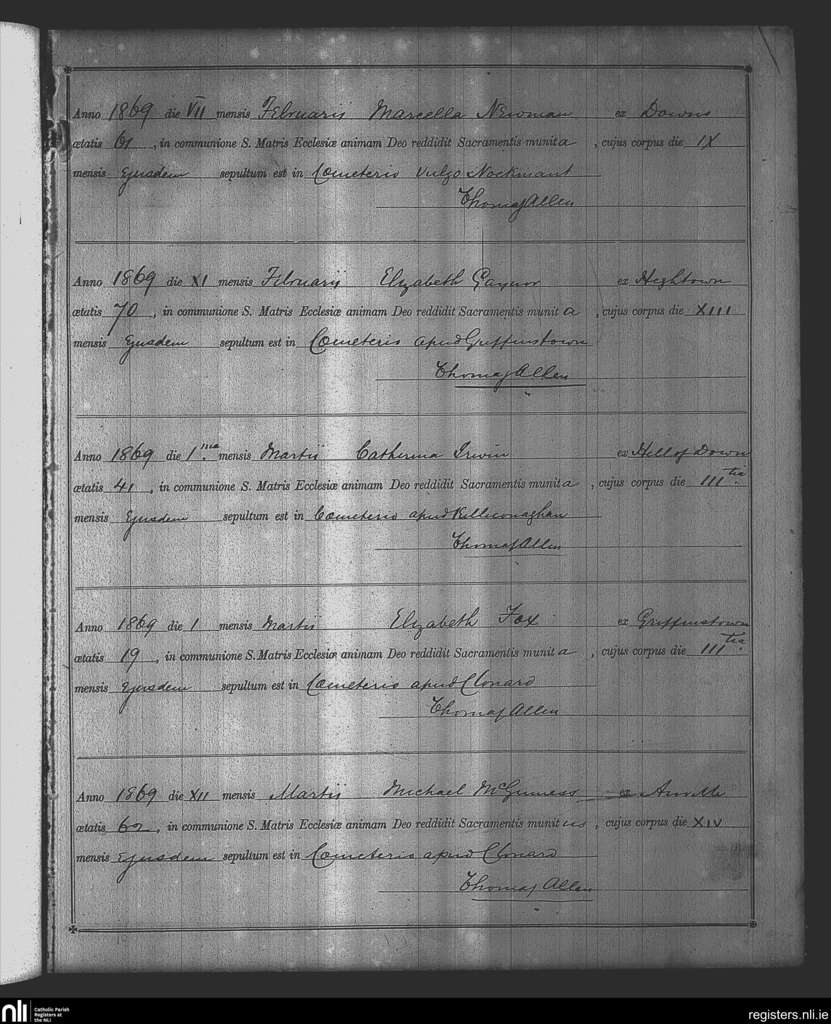 Anno 1869 die VII mensis Februarii Marcella Newman ex Downs
ætatis 61, in communione S. Matris Ecclesiæ animam Deo reddidit Sacramentis munita, cujus corpus die IX
mensis Ejusdem sepultum est in Cometerio vulgo Nockmant
Thomas Allen
Anno 1869 die XI mensis Februarii Elizabeth Gaynor ex Hightown
ætatis 70, in communione S. Matris Ecclesiæ animam Deo reddidit Sacramentis munita, cujus corpus die XIII
mensis Ejusdem sepultum est in Cometerio apud Griffinstown
Thomas Allen
Anno 1869 die 1ma mensis Martii Catherina Irwin ex Hill of Down
ætatis 41, in communione S. Matris Ecclesiæ animam Deo reddidit Sacramentis munita, cujus corpus die IIItia
mensis Ejusdem sepultum est in Cometerio apud Killiconaghan
Thomas Allen
Anno 1869 die 1 mensis Martii Elizabeth Fox ex Griffinstown
ætatis 19, in communione S. Matris Ecclesiæ animam Deo reddidit Sacramentis munita, cujus corpus die IIItia
mensis Ejusdem sepultum est in Cometerio apud Clonard
Thomas Allen
Anno 1869 die XII mensis Martii Michael McGuiness ex
ætatis 62, in communione S. Matris Ecclesiæ animam Deo reddidit Sacramentis munitus, cujus corpus die XIV
mensis Ejusdem sepultum est in Cometerio apud Clonard
Thomas Allen
nli Catholic Parish
Registers at
the NLI
registers.nli.ie